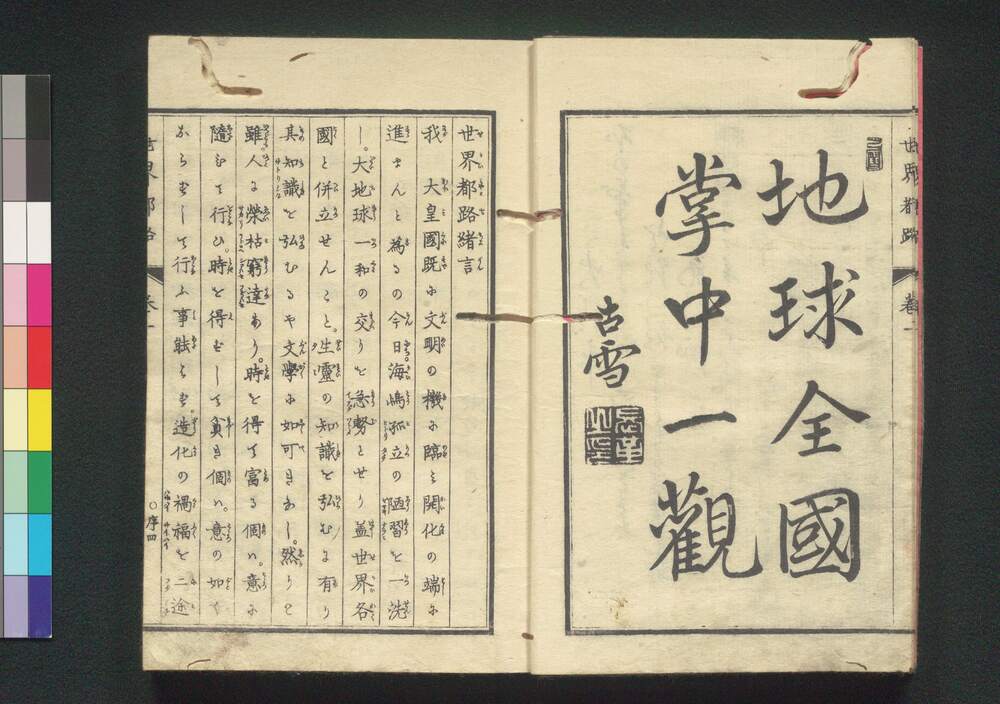 世界都路
卷一
地球全國
掌中一觀
古雪
世界都路緒言
我 大皇國既に文明の機に臨み開化の端に
進まんと為るの今日。海嶋孤立の陋習を一洗
し。大地球一和の交りを急務とせり蓋世界各
國と併立せんこと。生靈の知識を弘むる有り
其知識を弘むるや文學に如可きなし。然りと
雖。人に榮枯窮達あり。時を得て富る個ハ。意に
隨ひて行ひ。時を得ずして貧き個ハ。意の如く
ならずして行ふ事能はず。造化の禍福を二途
世界都路
卷一
〇序四